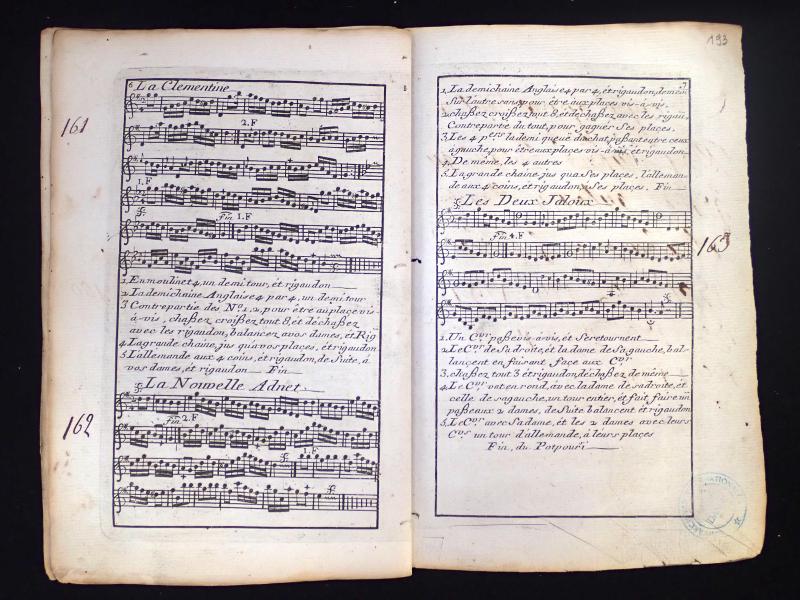 6 La Clementine
161
2.F
1.F
Fin 1.F
1, En moulinet 4, un demi tour, et rigaudon
2 La demi chaine Anglaise 4 par 4, un demi tour
3 Contrepartie des No. 1, 2, pour etre au place vis-
à-vis, chaßez croißez tout 8, et déchaßez
avec les rigaudon, balancez a vos dames, et Rig
4 La grande chaine, jus qu'a vos places, et rigaudon
5 L'allemande aux 4 coins, et rigaudon, de Suite, à
vos dames, et rigaudon Fin
La Nouvelle Adnet
162
Fin 2.F
1.F
193
1, La demichaine Anglaise 4 par 4, et rigaudon, de mem
Sur l'autre sens, pour etre aux places vis-à-vis.
2 chaßez croißez tout 8, et déchaßez avec les rigau,
Contrepartie du tout, pour gagner ses places,
3 Les 4 pers la demi queue du chat, paßant entre ceux
a gauche, pour être aux places vis-à-vis, et rigaudon
4, De même, les 4 autres
5 La grande chaine, jus qu a Ses places, l'alleman-
de aux 4 coins, et rigaudon, a Ses places, Fin
Les Deux Jaloux
Fin 4.F
163
1 Un Cver paße vis-avis, et Se retournent
2 Le Cer de Sa droite, et la dame de Sa gauche, bal-
lancent en faisant face aux Cer
3, chaßez tout 3 et rigaudon, déchaßez de même
4, Le Cer vat en rond, avec la dame de sa droite, et
celle de sa gauche, un tour entier, et fait faire un
paße aux 2 dames, de Suite balancent et rigaudon
5, Le Cer avec Sa dame, et les 2 dames avec leurs
Cers un tour d'allemande, à leurs places
Fin, du Potpouri